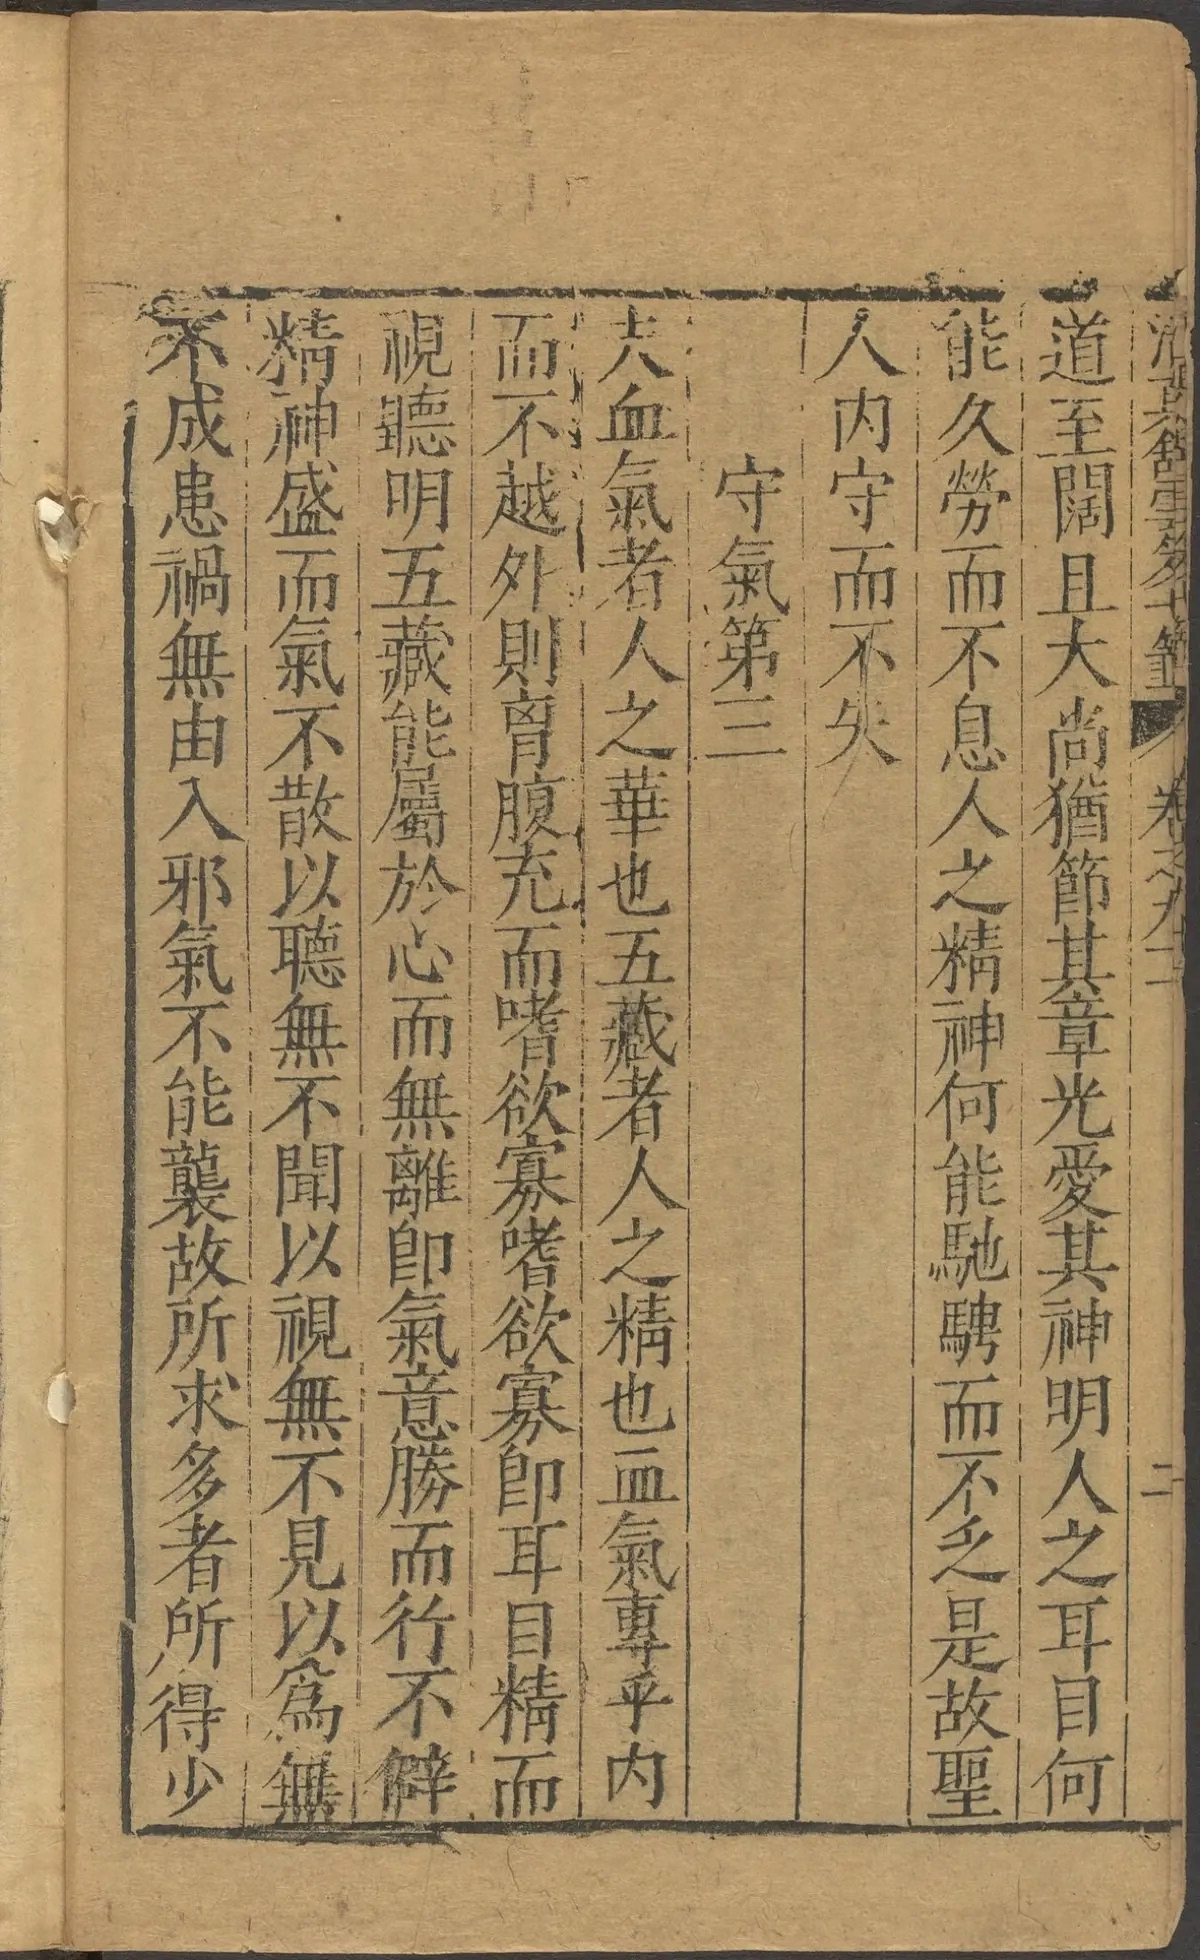 清真舘雲笈七籤 卷之九十一 二
道至闊且大尚猶節其章光愛其神明人之耳目何
能久勞而不息人之精神何能馳騁而不乏是故聖
人内守而不失
守氣第三
夫血氣者人之華也五藏者人之精也血氣專乎内
而不越外則胷腹充而嗜欲寡嗜欲寡卽耳目精而
視聽明五藏能屬於心而無離卽氣意勝而行不僻
精神盛而氣不散以聽無不聞以視無不見以爲無
不成患禍無由入邪氣不能襲故所求多者所得少